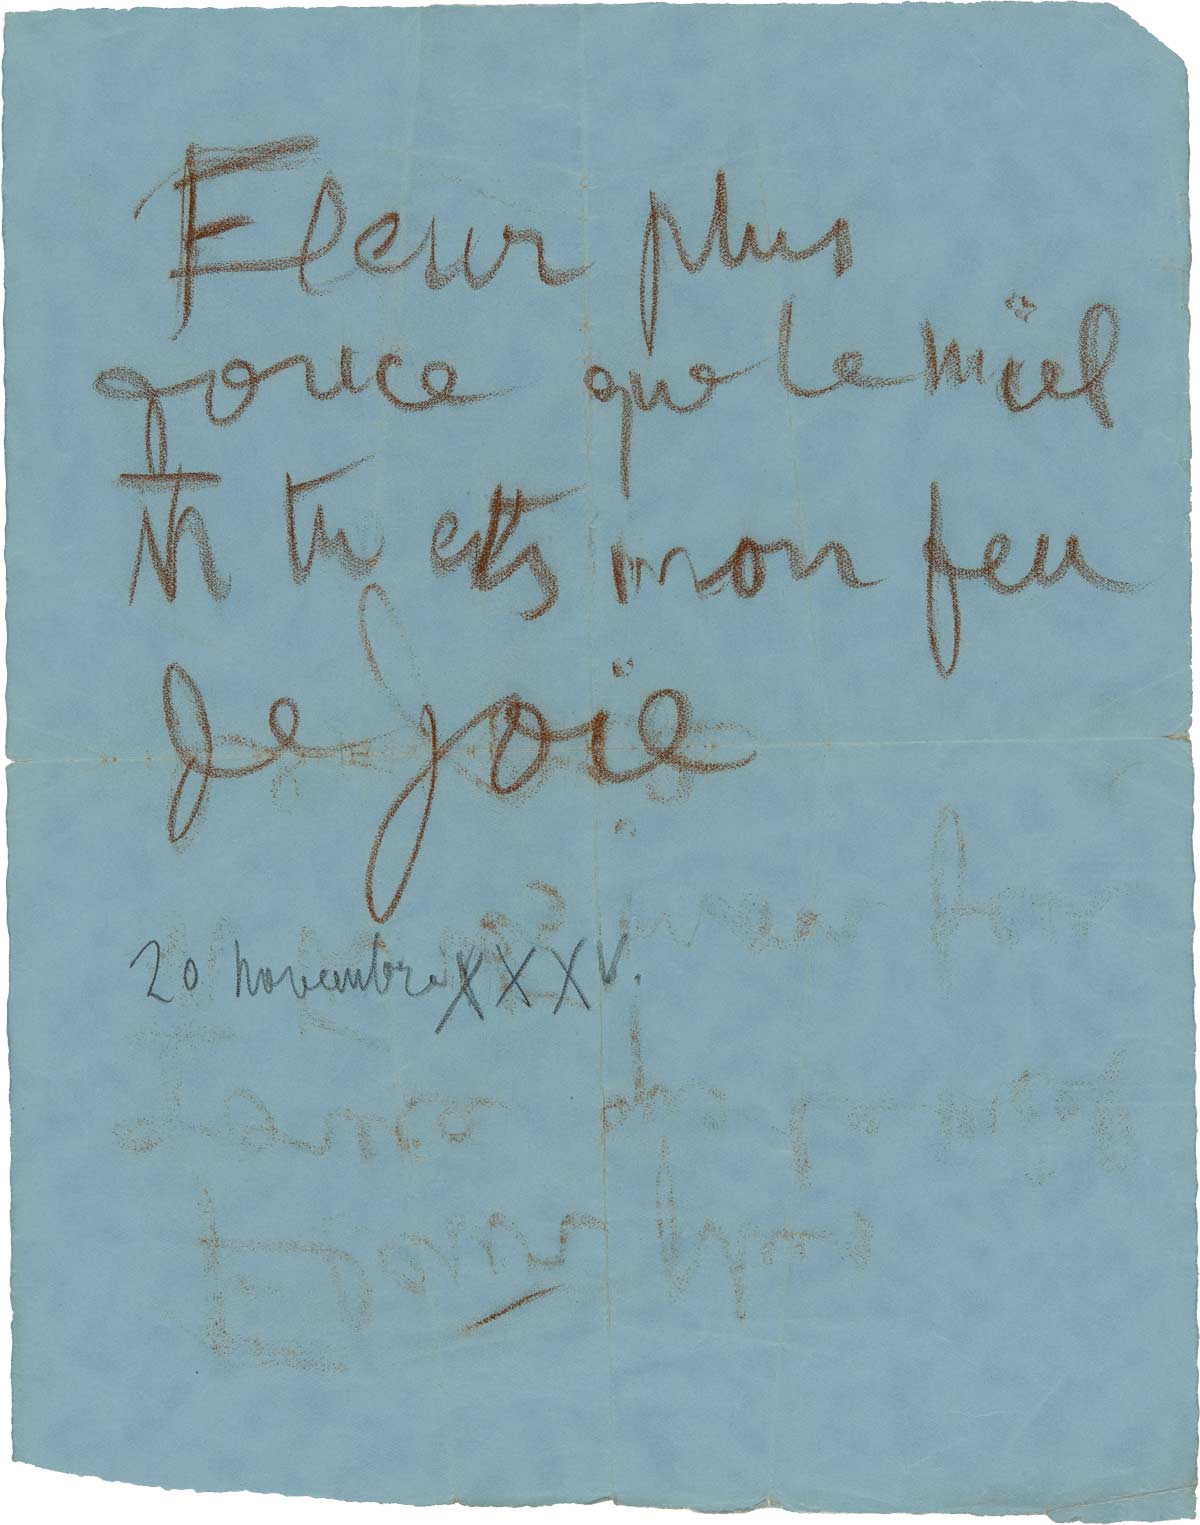 Fleur plus
douce que le miel
M tu es mon feu
de Joie
20 novembre XXXV.